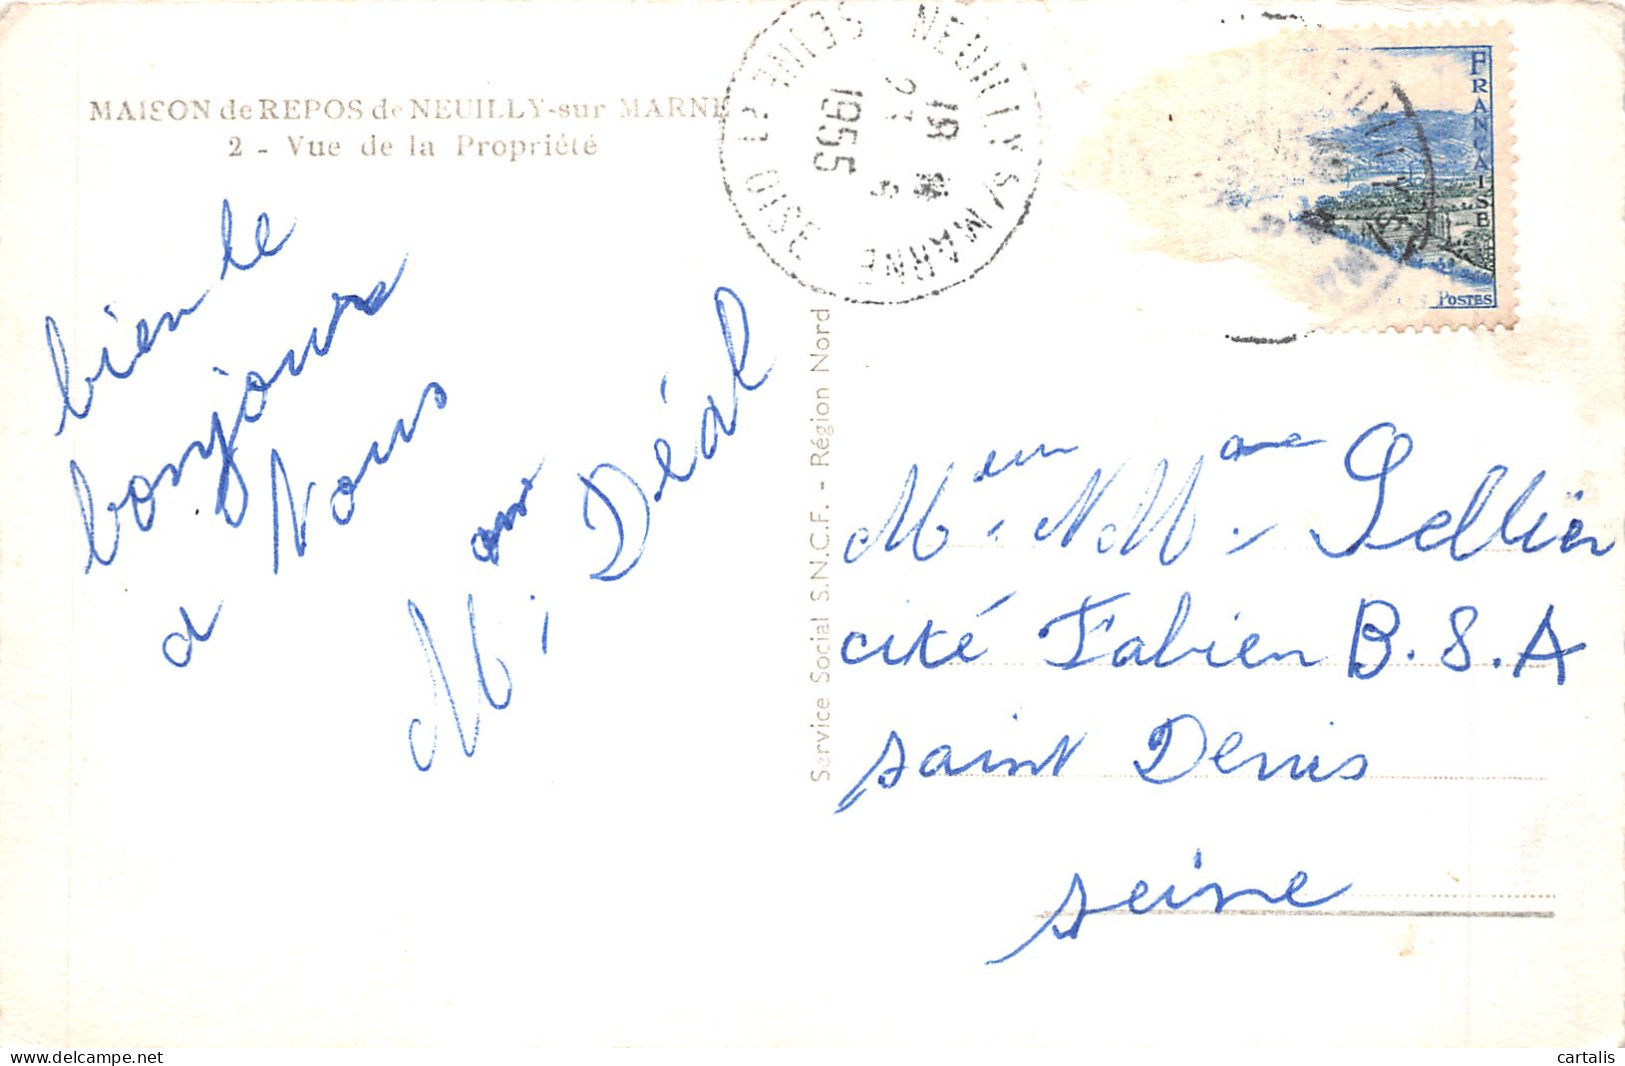 MAISON de REPOS de NEUILLY-sur MARNE
2 - Vue de la Propriété
NEUILLY S/ MARNE
SEINE ET OISE
18 H
21 - 9
1955
FRANÇAISE
POSTES
bien le
bonjours
a Vous
Mme Déal
Service Social S.N.C.F. - Région Nord
Meur Mme Sellier
cité Fabien B.S.A
saint Denis
seine
cartalis